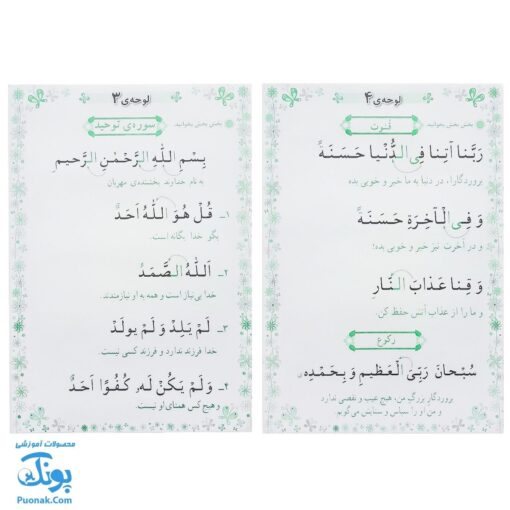 لوحه‌ی ۴
بخش بخش بخوانید.
قنوت
رَبَّنا آتِنا فِی الدُّنْیا حَسَنَةً
پروردگارا، در دنیا به ما خیر و خوبی بده
وَ فِی الْآخِرَةِ حَسَنَةً
و در آخرت نیز خیر و خوبی بده!
وَ قِنا عَذابَ النّارِ
و ما را از عذاب آتش حفظ کن.
رکوع
سُبْحانَ رَبِّیَ الْعَظیمِ وَ بِحَمْدِهِ
پروردگار بزرگ من، هیچ عیب و نقصی ندارد
و من او را سپاس و ستایش می‌گویم.
لوحه‌ی ۳
بخش بخش بخوانید.
سوره‌ی توحید
بِسْمِ اللّٰهِ الرَّحْمٰنِ الرَّحیمِ
به نام خداوند بخشنده‌ی مهربان
۱ـ قُلْ هُوَ اللّٰهُ اَحَدٌ
بگو خدا یگانه است.
۲ـ اَللّٰهُ الصَّمَدُ
خدا بی‌نیاز است و همه به او نیازمندند.
۳ـ لَمْ یَلِدْ وَ لَمْ یولَدْ
خدا فرزند ندارد و فرزند کسی نیست.
۴ـ وَ لَمْ یَکُنْ لَهُ کُفُوًا اَحَدٌ
و هیچ کس همتای او نیست.
محصولات آموزشی
پونک
Puonak.Com